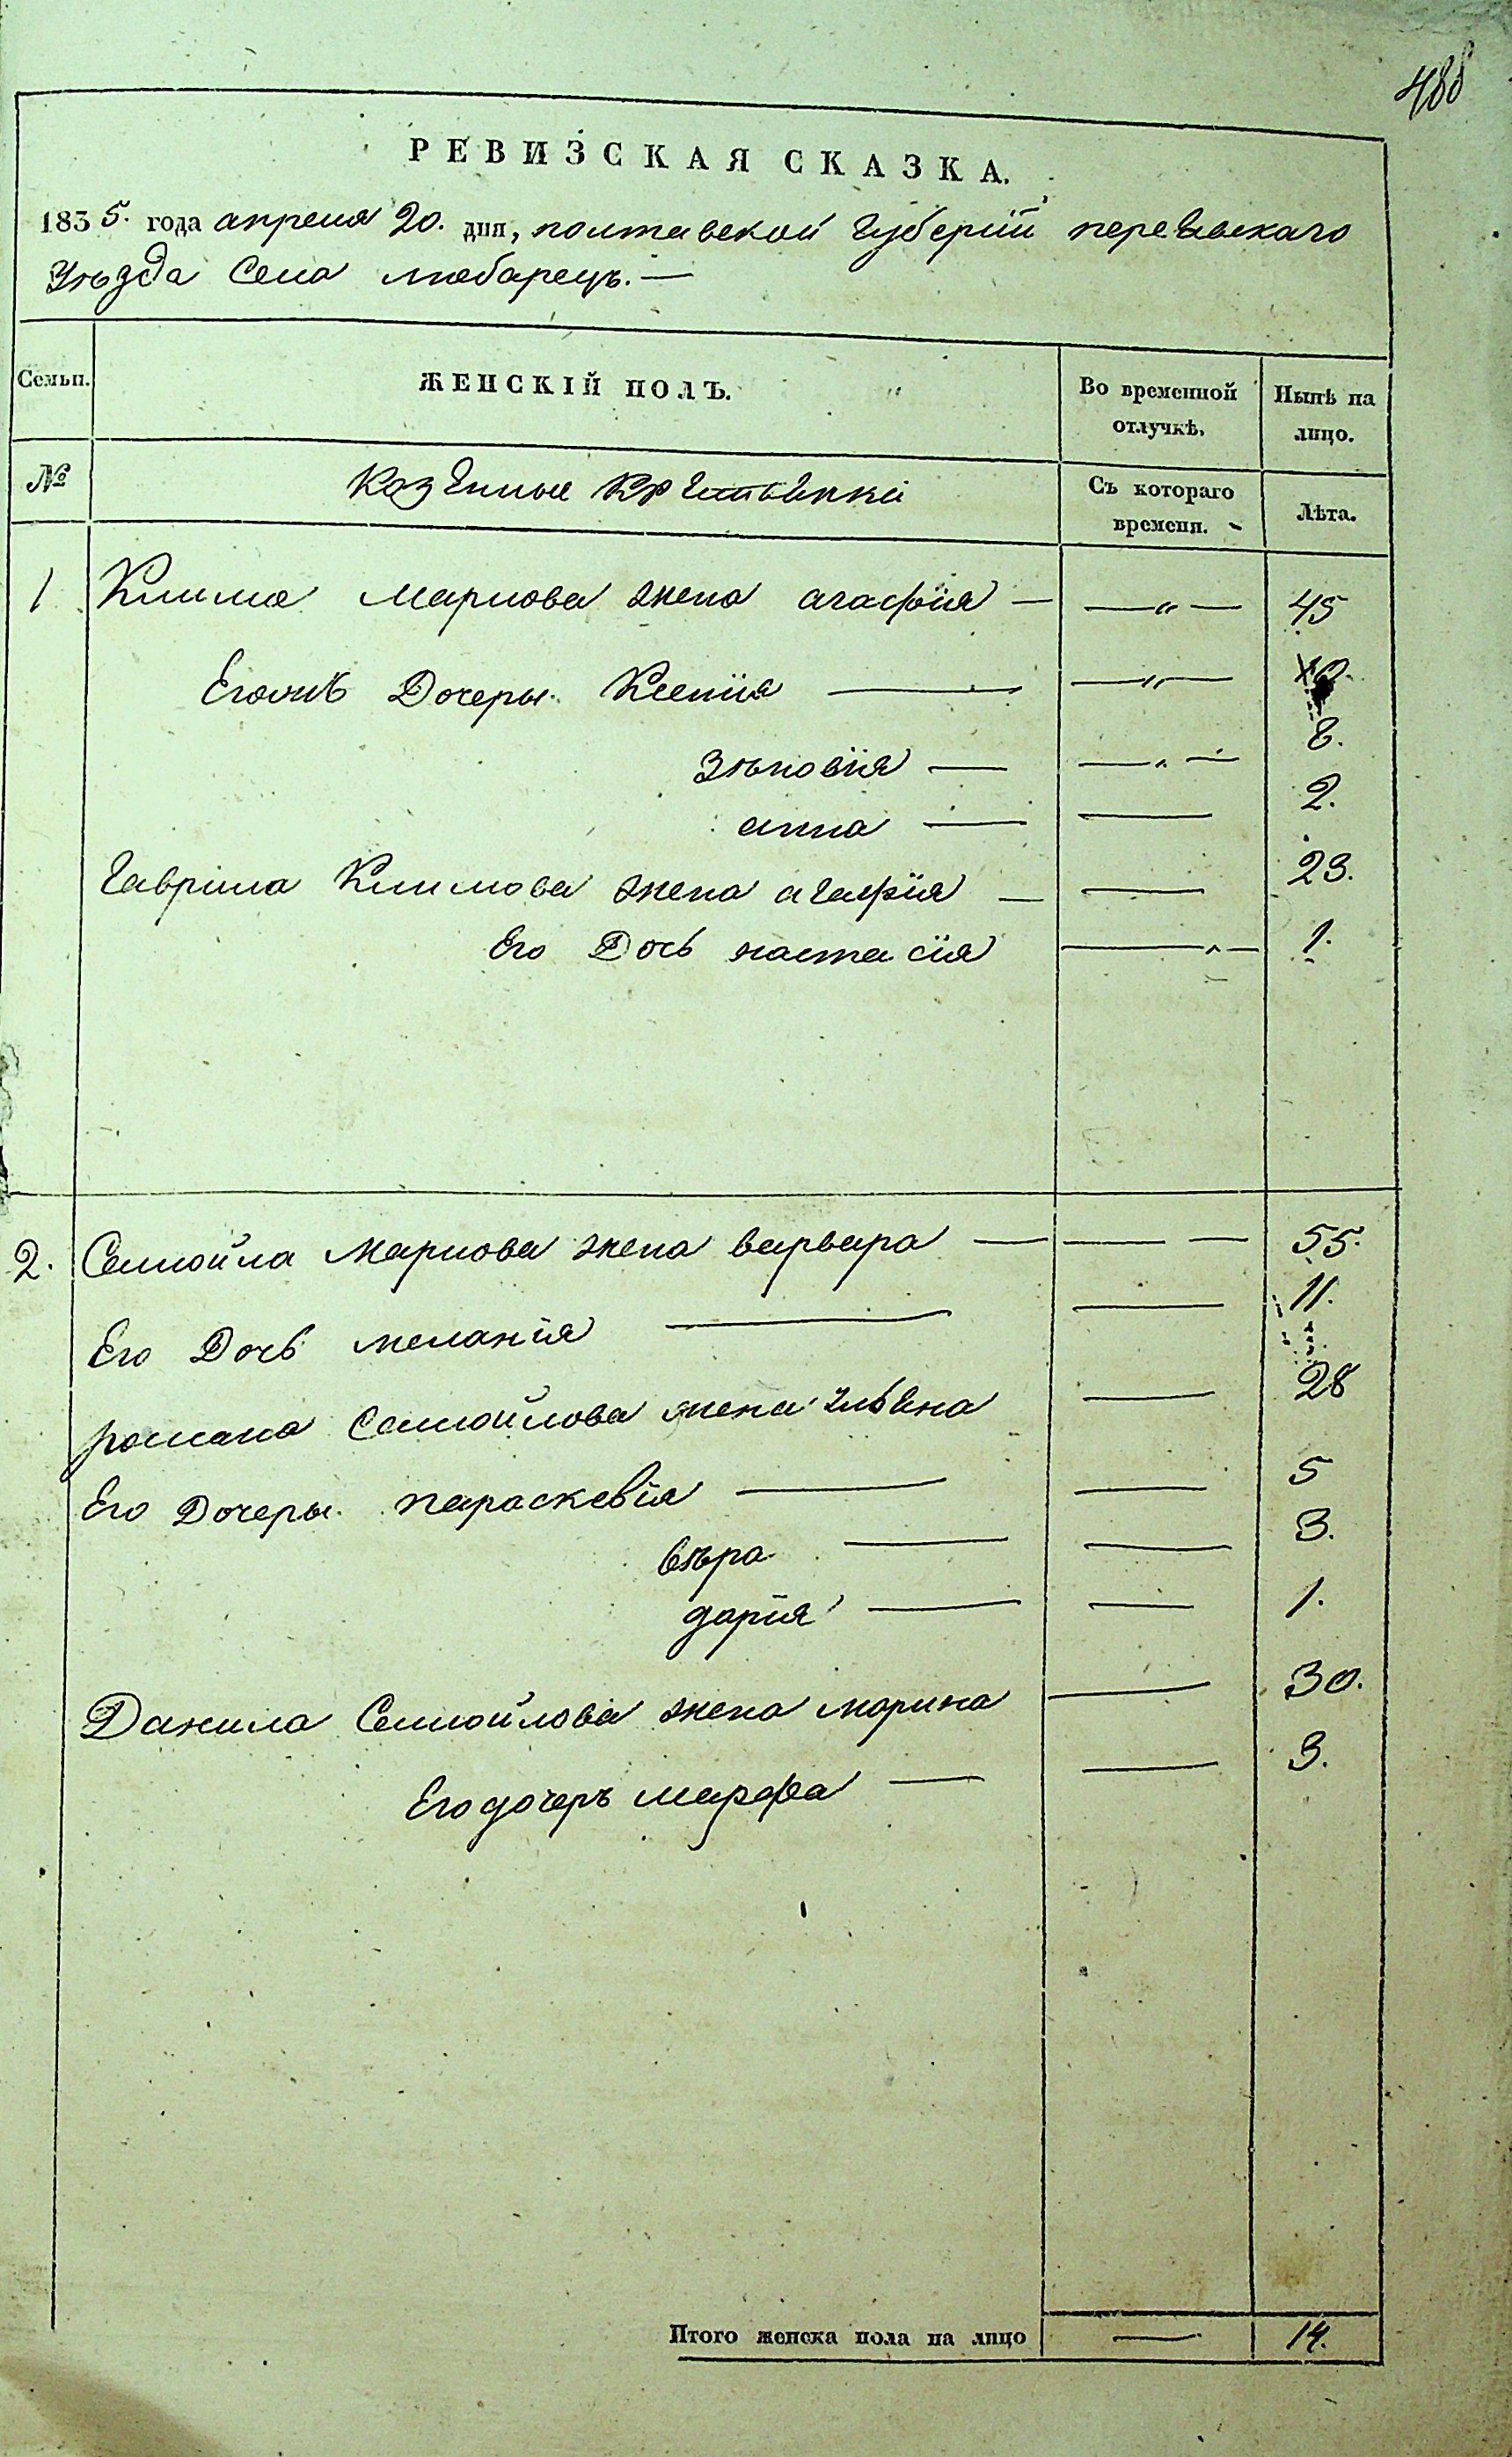 488
РЕВИЗСКАЯ СКАЗКА.
1835. года апреля 20. дня, полтавской Губернїи переяславскаго
Уѣзда Села любарецъ. —
Семьи. ЖЕНСКІЙ ПОЛЪ. Во временной отлучкѣ. Нынѣ на лицо.
№ Казенные Крестьянки Съ котораго времени. Лѣта.
1 Клима Маркова жена агафїя — — „ — 45
Его дочеры. Ксенїя — — „ — 10.
Зѣновїя — — „ — 8.
анна — — 2.
Гаврїила Климова жена агафїя — — 23.
Его Дочь настасїя — „ — 1.
2. Самойла Маркова жена варвара — — — 55.
Его Дочь меланїя — — 11.
романа Самойлова жена ульяна — 28
Его Дочеры. параскевїя — — 5
вѣра — — 3.
дарїя — — 1.
Данила Самойлова жена марина — 30.
Его дочерь марфа — — 3.
Итого женска пола на лицо — 14.